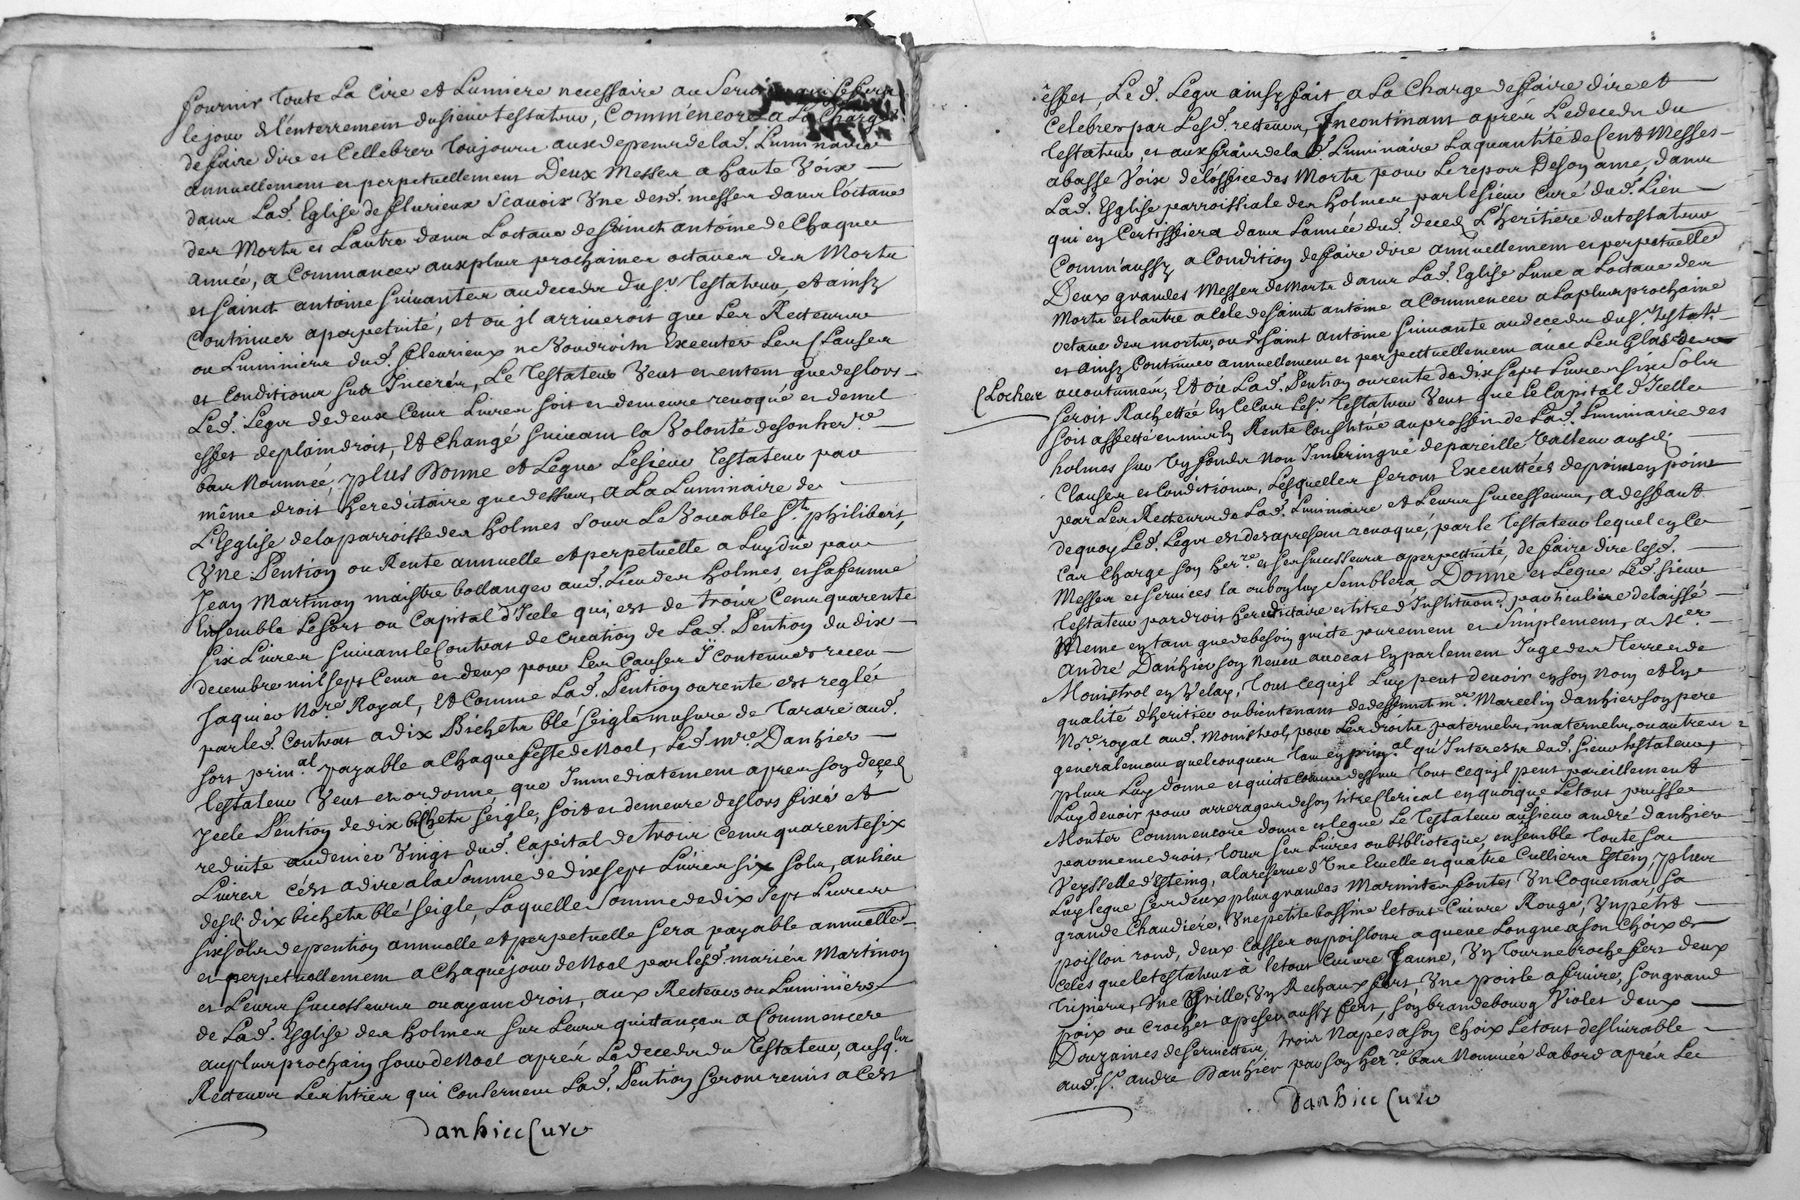 fournir toute La Cire et Lumiere necessaire au Service qui se fera
le jour de l'enterrement du sieur testateur, Comm'encore a La Charge
de faire dire et Cellebrer toujours aux depens de lad. Luminaire
annuellement et perpetuellement Deux Messes a haute Voix
dans Lad. Eglise de flurieux scauoir Vne desd. messes dans l'octaue
des Morts et Lautre dans Loctaue de sainct antoine de Chaque
année, a Commancer aux plus prochaines octaues des Morts
et sainct antoine suiuantes au deceds du sr. testateur, et ainsy
Continuer a perpetuité, et ou jl arriueroit que Les Recteurs
ou Luminiers dud. fleurieux ne Voudroitn Executer Les Clauses
et Conditions sus Incerés, Le Testateur Veut et entent que deslors
Led. Legs de deux Cens Liures soit et demeure reuoqué et de nul
effet de plain droit, Et Changé suiuant la Volonté de son her.re
bas Nommée, plus Donne et Legue Lesieur Testateur par
même droit hereditaire que dessus, a La Luminaire de
L'Esglise de la parroisse des Holmes sous Le Vouable St. philibert,
Vne Pention ou Rente annuelle et perpetuelle a Luy düe par
Jean Martinon maistre bollanger aud. Lieu des Holmes, et sa femme
Ensemble Le sort ou Capital d'Icele qui, est de trois Cens quarente
six Liures suiuant le Contrat de Creation de Lad. Pention du dix
decembre mil sept Cens et deux pour Les Causes y Contenues receu
Jaquier No.re Royal, Et Comme Lad. Pention ou rente est reglée
par led. Contrat a dix Bichets blé seigle mesure de Tarare aud.
sort prin.al payable a Chaque feste de Noel, Led. mre. Danhier
testateur Veut et ordonne que Immediatement apres son deçed
Jcele Pention de dix bichets seigle, soit et demeure deslors fixée et
reduite au denier Vingt dud. Capital de trois Cens quarente six
Liures c'est a dire a la somme de dix sept Liures six sols, au lieu
desd. dix bichets blé seigle, Laquelle somme de dix sept Liures
six sols de pention annuelle et perpetuelle sera payable annuelle.
et perpetuellement a Chaque jour de Noel par lesd. mariés Martinon
et Leurs successeurs ou ayanc droit, aux Recteurs ou Luminiers
de Lad. Esglise des Holmes sur Leurs quittances a Commencere
au plus prochain jour de Noel aprés Le deceds du Testateur, ausq.ls
Recteurs Les titres qui Consernent Lad. Pention seront remis a Cest
danhier Curé
effet, Le d. Legs ainsy fait a La Charge de faire dire et
Celebrer par Lesd. recteurs, Incontinant aprés Le deceds du
testateur, et aux frais de lad. Luminaire La quantité de Cent Messes
a basse Voix de l'office des Morts pour Le repos De son ame, dans
Lad. Esglise parroissiale des Holmes par le sieur Curé dud. Lieu
qui en Certiffiera dans L'année dud. deced L'heritiere du testateur
Comm'aussy a Condition de faire dire annuellement et perpetuelle.
Deux grandes Messes de Morts dans Lad. Eglise L'une a Loctaue des
Morts et lautre a celle de sainct antoine a Commencer a la plus prochaine
octaue des morts, ou de saint antoine suiuante au deceds du sr. testatr.
et ainsy Continuer annuellement et perpetuellement auec Les Glas des
Cloches accoutumés, Et ou Lad. Pention ou rente de dix sept Liures six sols
seroit Rachettée En Ce Cas Lesr. Testateur Veut que Le Capital d'Icelle
soit assette et mis En Rente Constitué au proffit de Lad. Luminaire des
holmes sur Vn fonds Non Imbringué de pareille Valleur ausd.
Clauses et Conditions, Lesquelles seront Executtées de point en point
par Les Recteurs de Lad. Luminaire et Leurs successeurs, a deffaut
de quoy Led. Legs est des apresent reuoqué, par le Testateur lequel en Ce
Cas Charge son her.re et ses successeurs a perpetuité, de faire dire lesd.
Messes et seruices la ou bon luy semblera Donne et Legue Led. sieur
testateur par droit hereditaire et titre d'Institution particuliere delaissé
Meme en tant que de besoin quitte purement et simplement, a Mer.
André Danhier son Neueu auocat En parlement Juge des Terres de
Monistrol en Velay, Tout Ce qu'il Luy peut deuoir en son Nom et En
qualité d'heritier ou bientenant de deffunt mre. Marcelin danhier son pere
No.re royal aud. Monistrol, pour Les droits paternels, maternels, ou autres
generalement quelconques tant en prin.al qu'Interests dud. sieur testateur
plus Luy donne et quitte Comme dessus tout Ce qu'jl peut pareillement
Luy deuoir pour arrerages de son titre Clerical en quoique Le tout puisse
Monter Comm'encore donne et legue Le Testateur aud. sieur andré danhier
par meme droit, tous ses Liures ou biblioteque, ensemble Toute sa
Veysselle d'Esteing, a la reserue d'Vne Ecuelle et quatre Cuilliers Estein, plus
Luy legue ses deux plus grandes Marmites fontes Vn Coquemar sa
grande Chaudiere, Vne petite bassine le tout Cuiure Rouge, Vn petit
poislon rond, deux Casses ou poislons a queue Longue a son Choix de
Celes que le testateur à le tout Cuiure Jaune, Vn Tournebroche fert deux
Tripiers, Vne Grille, Vn Rechaux fert, Vne poisle a fruire, son grand
poix ou Crochet a peser aussy fert, son brandebourg Violet deux
Douzaines de seruiettes, trois Napes a son Choix Le tout desliurable
aud. sr. andre Danhier par son her.re bas Nommée dabord aprés Le
danhier Curé